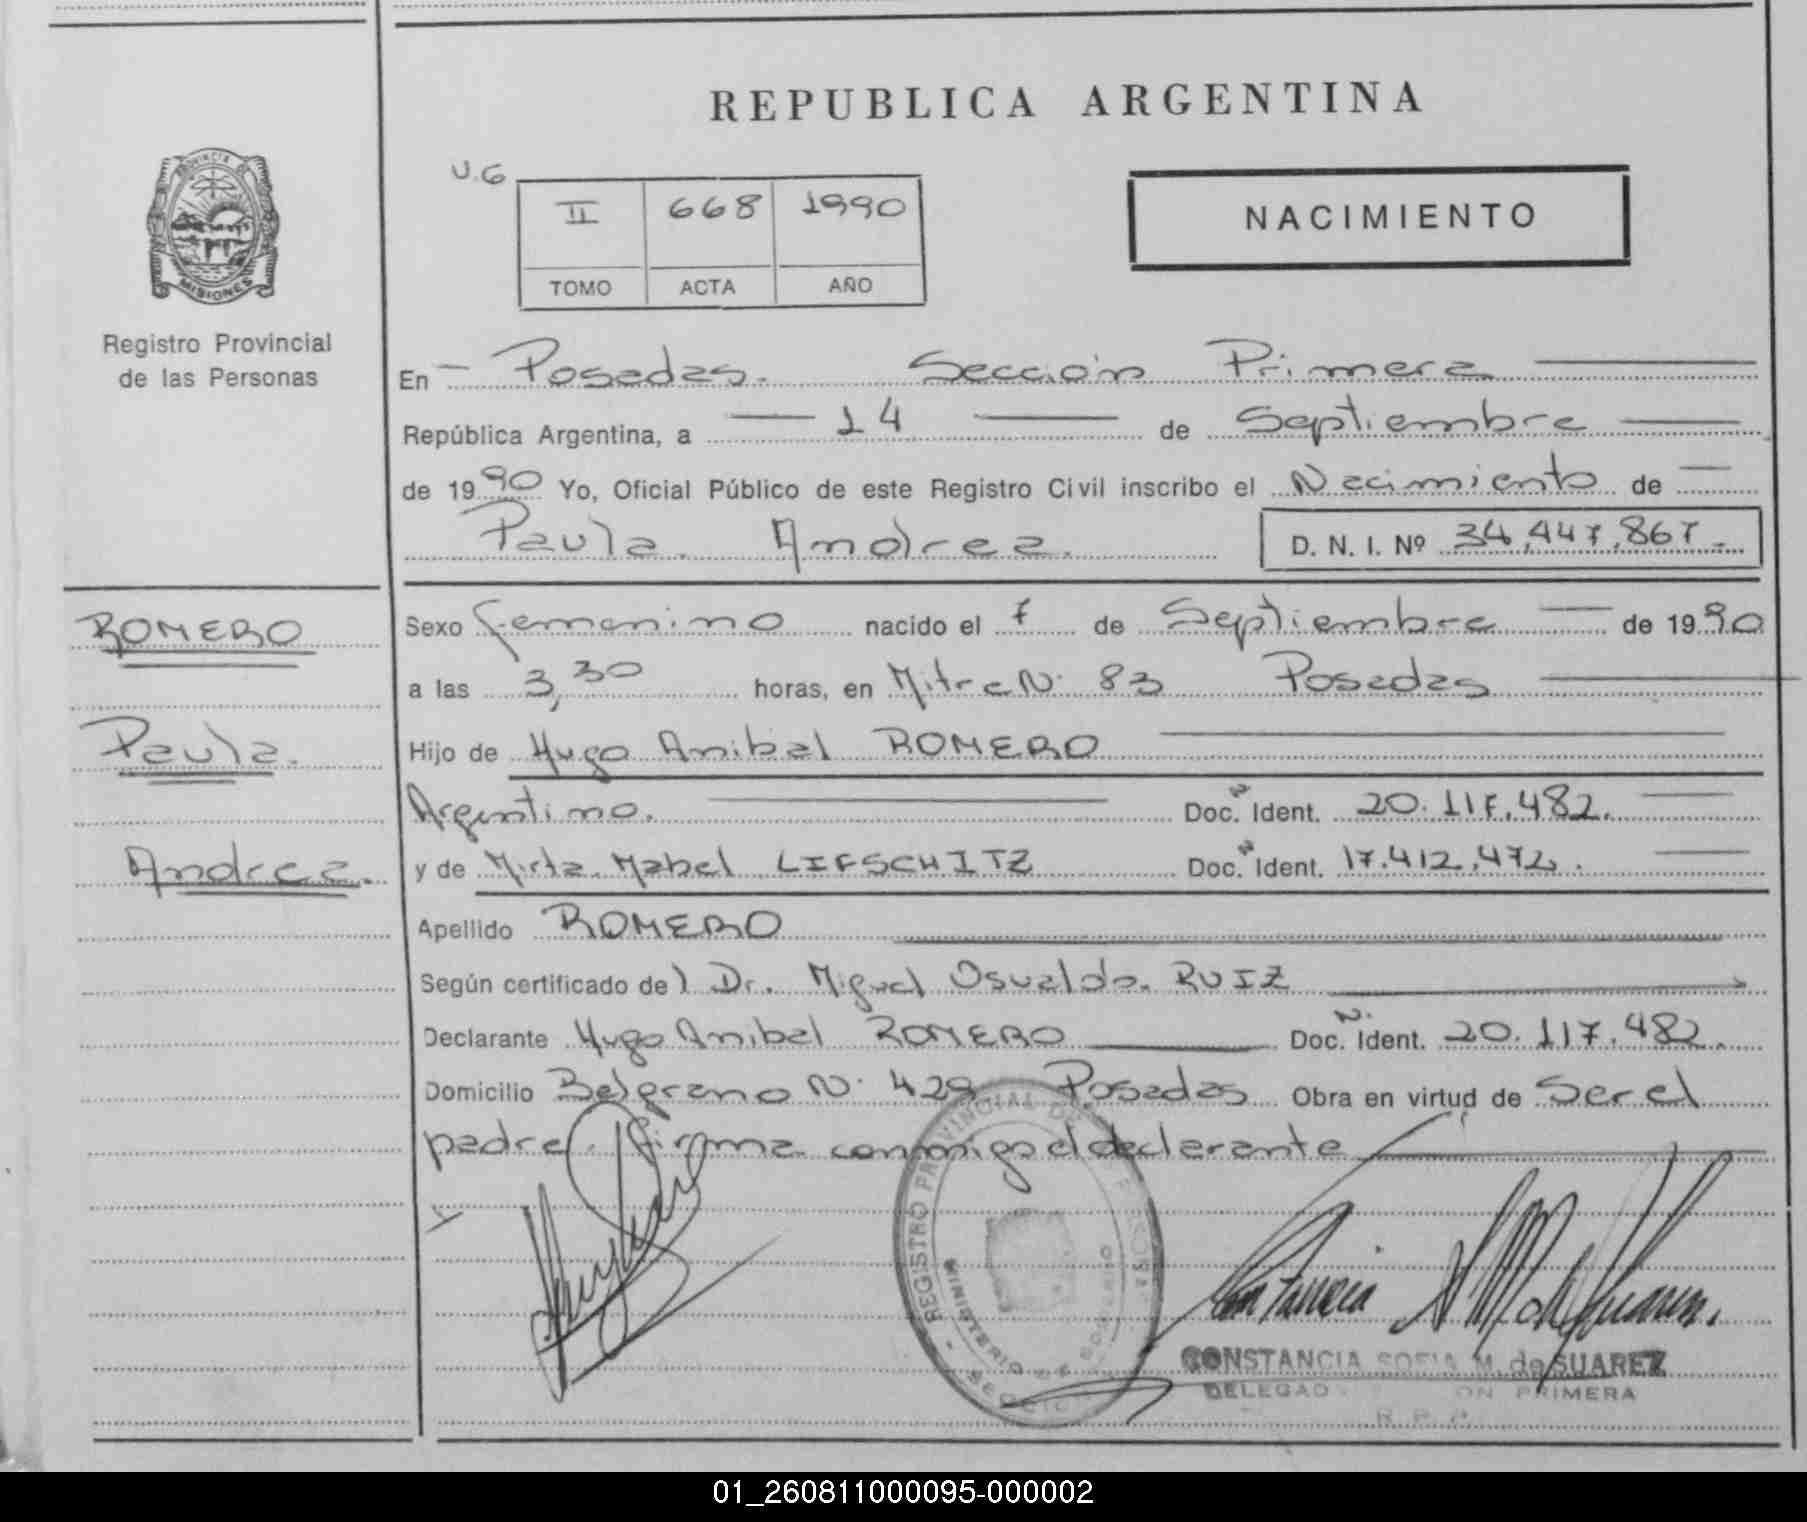 REPUBLICA ARGENTINA
U.G
II 668 1990
TOMO ACTA AÑO
NACIMIENTO
PROVINCIA DE
MISIONES
Registro Provincial
de las Personas
En Posadas. Sección Primera
República Argentina, a 14 de Septiembre
de 1990 Yo, Oficial Público de este Registro Civil inscribo el Nacimiento de
Paula Andrea.
D. N. I. Nº 34,447,867.
ROMERO
Paula.
Andrea.
Sexo femenino nacido el 7 de Septiembre de 1990
a las 3,30 horas, en Mitre N. 83 Posadas
Hijo de Hugo Anibal ROMERO
Argentino. Doc. N Ident. 20.117.482.
y de Mirta Mabel LIFSCHITZ Doc. N Ident. 17.412.472.
Apellido ROMERO
Según certificado del Dr. Miguel Osvaldo RUIZ
Declarante Hugo Anibal ROMERO Doc. N. Ident. 20.117.482.
Domicilio Belgrano N. 429 Posadas Obra en virtud de Ser el
padre. firma conmigo el declarante
REGISTRO PROVINCIAL DE
MINISTERIO DE GOBIERNO
CONSTANCIA SOFIA M. de SUAREZ
PRIMERA
01_260811000095-000002